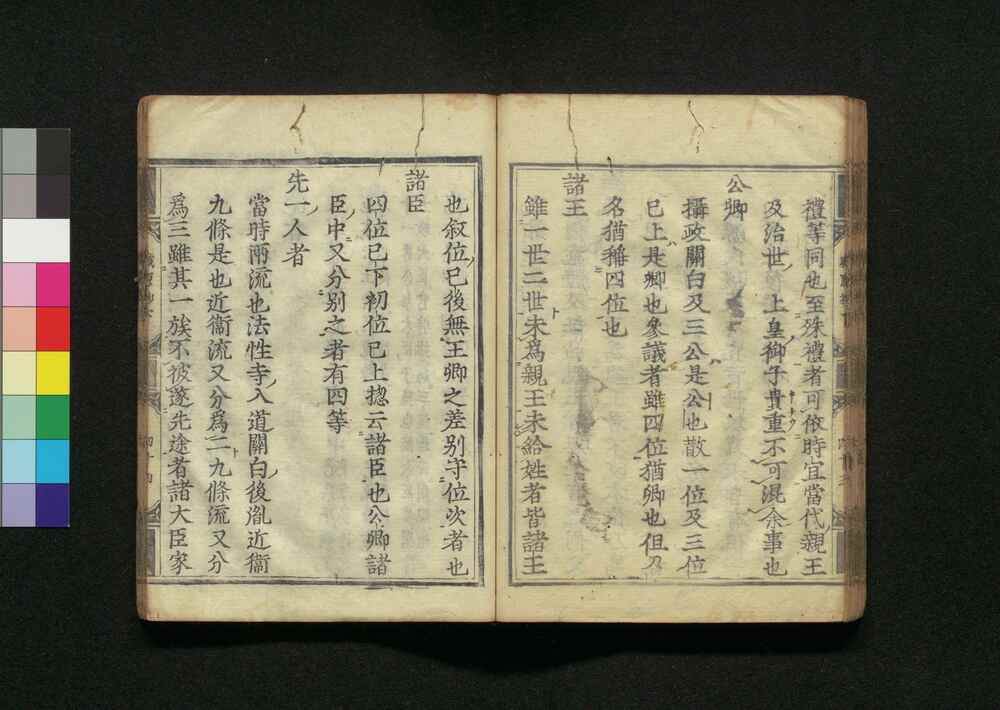 禮等同也至殊禮者可依時宜當代親王
及治世上皇御子貴重不可混余事也
公卿
攝政關白及三公是公也散一位及三位
已上是卿也參議者雖四位猶卿也但
名猶稱四位也
諸王
雖一世二世未為親王未給姓者皆諸王
也叙位已後無王卿之差別守位次者也
諸臣
四位已下初位已上揔云諸臣也公卿諸
臣中又分別之者有四等
先一人者
當時兩流也法性寺入道關白後胤近衞
九條是也近衞流又分爲二九條流又分
爲三雖其一族不被遂先途者諸大臣家